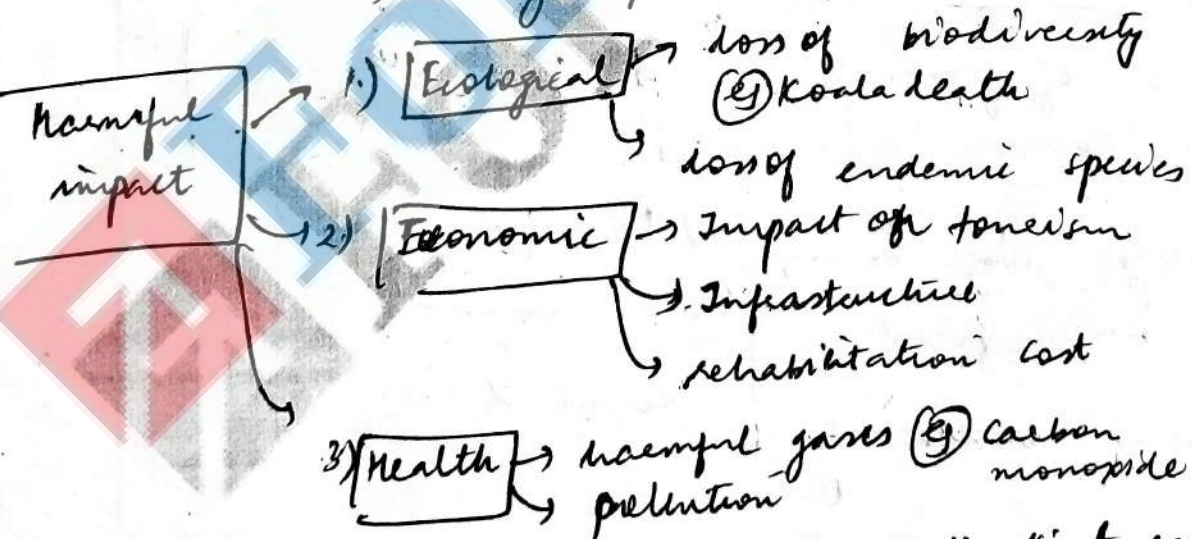 Harmful impact
1.) Ecological → loss of biodiversity
eg Koala death
loss of endemic species
2.) Economic → Impact on tourism
Infrastructure
rehabilitation cost
3) Health → harmful gases eg Carbon monoxide
pollution